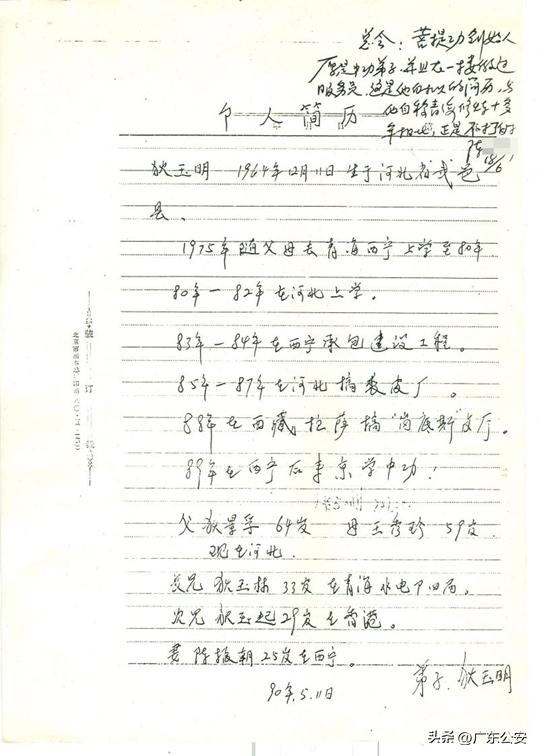 总会：菩提功创始人
原是中功弟子，并且在一接做过
服务员，这是他自报的简历，与
他自称青海修练十多
年相比，正是不打自
陈
18/6
个人简历
狄玉明 1964年12月11日生于河北省武邑
县。
1975年随父母去青海西宁上学至80年
80年—82年在河北上学。
83年—84年在西宁承包建设工程。
85年—87年在河北搞裘皮厂。
88年在西藏拉萨搞“岗底斯”文厅。
89年在西宁后来京学中功！
父 狄景孚 64岁 母 王秀珍 59岁
现在河北.
长兄 狄玉栋 33岁 在青海水电厂四局。
次兄 狄玉起 29岁在香港。
妻 陈振朝 25岁在西宁。
90年.5.11日
弟子. 狄玉明
装 订 线
头条 @广东公安